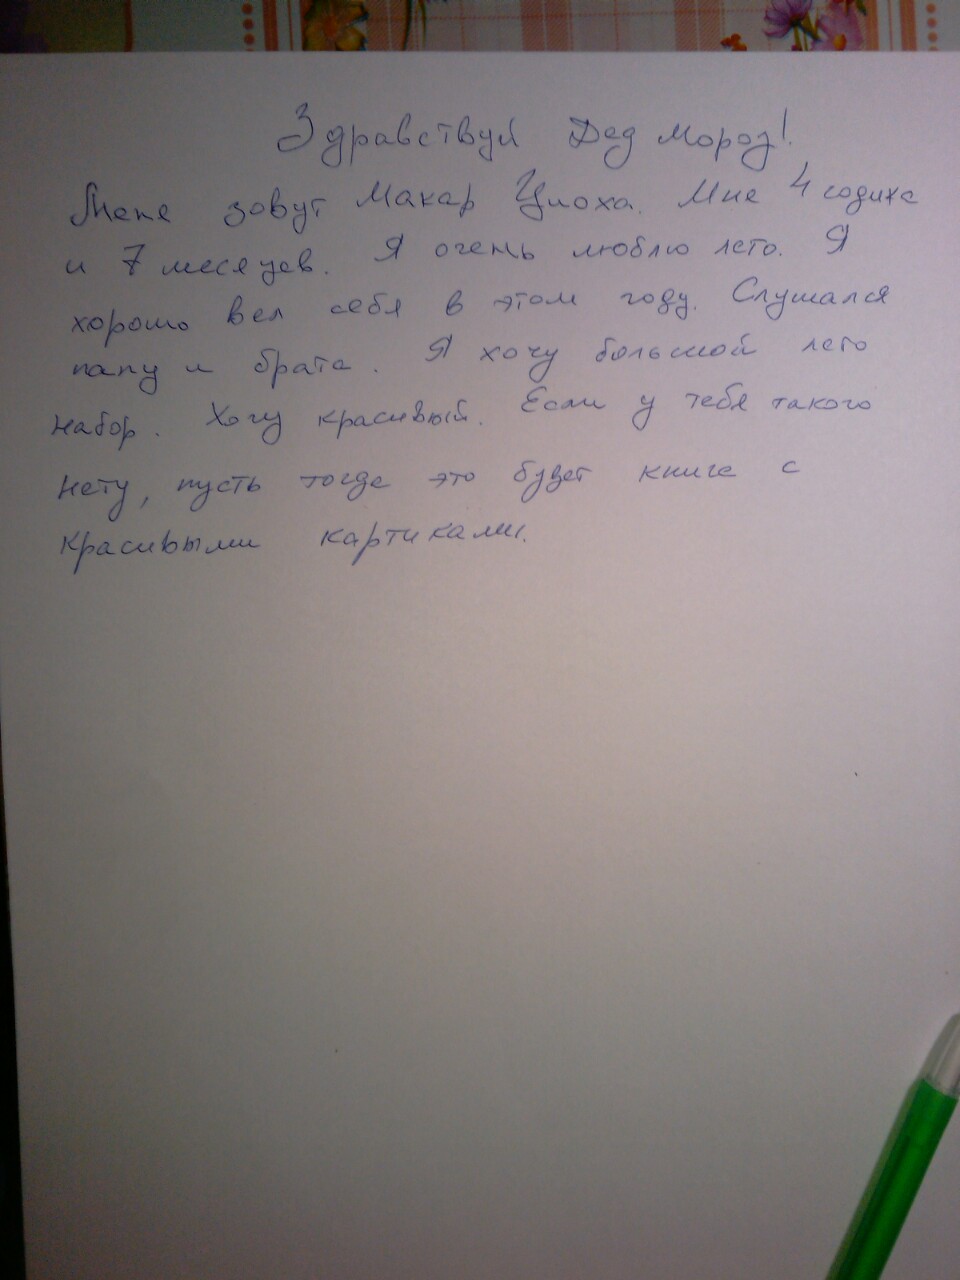 Здравствуй Дед Мороз!
Меня зовут Макар Цюха. Мне 4 годика
и 7 месяцев. Я очень люблю лето. Я
хорошо вел себя в этом году. Слушался
папу и брата. Я хочу большой лего
набор. Хочу красивый. Если у тебя такого
нету, пусть тогда это будет книга с
красивыми картиками.